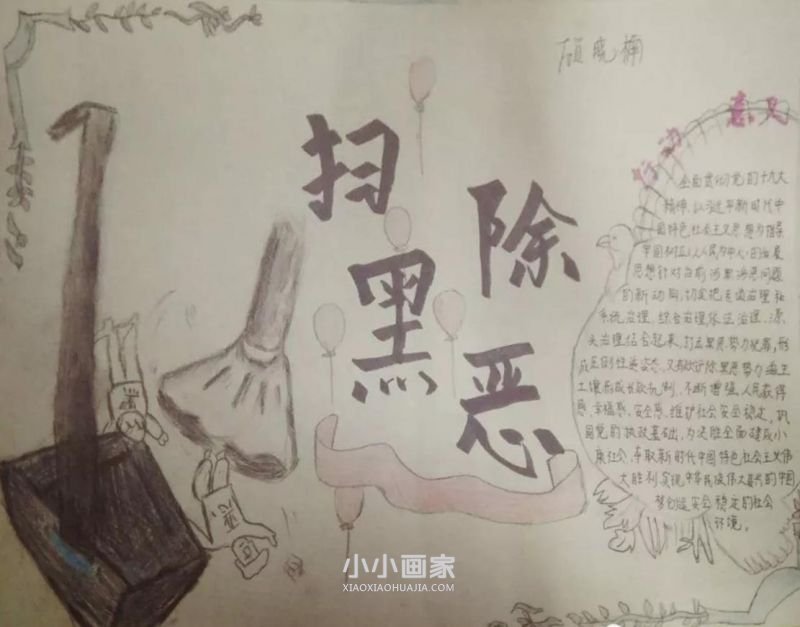 顾晓楠
扫黑
除恶
行动
意义
全面贯彻党的十九大
精神、以习近平新时代中
国特色社会主义思想为指导
牢固树立以人民为中心的发展
思想针对当前涉黑涉恶问题
的新动向,切实把专项治理和
系统治理、综合治理依法治理、源
头治理结合起来,打击黑恶势力犯罪,形
成压倒性
除黑恶势力滋生
土壤形成长效机制、不断增强人民获得
感、幸福感、安全感、维护社会安全稳定,巩
固党的执政基础,为决胜全面建成小
康社会、夺取新时代中国特色社会主义伟
大胜利实现中华民族伟大复兴的中国
梦创造安全稳定的社会
环境。
恶
小小画家
XIAOXIAOHUAJIA.COM